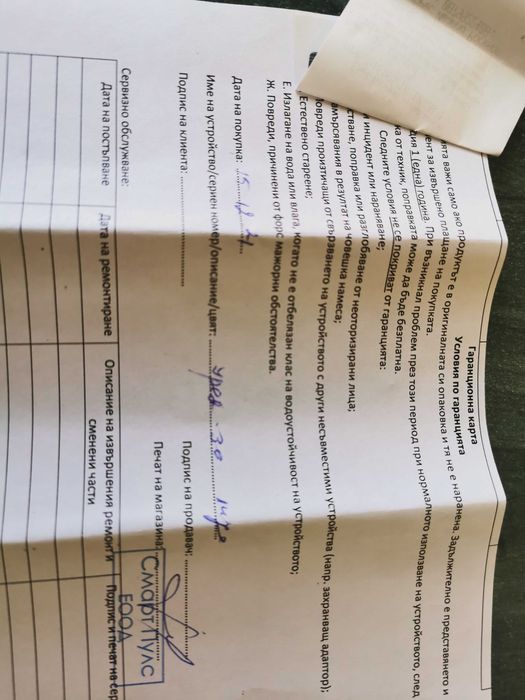 Гаранционна карта
Условия по гаранцията
ята важи само ако продуктът е в оригиналната си опаковка и тя не е наранена. Задължително е представянето и
ент за извършено плащане на покупката.
ция 1 (една) година. При възникнал проблем през този период при нормалното използване на устройството, след
на от техник, поправката може да бъде безплатна.
Следните условия не се покриват от гаранцията:
и инцидент или нараняване;
стване, поправка или разглобяване от неоторизирани лица;
амърсявания в резултат на човешка намеса;
овреди произтичащи от свързването на устройството с други несъвместими устройства (напр. захранващ адаптор);
Естествено стареене;
Е. Излагане на вода или влага, когато не е отбелязан клас на водоустойчивост на устройството;
Ж. Повреди, причинени от форс мажорни обстоятелства.
Дата на покупка:
Име на устройство/сериен номер/описание/цвят: уред
Подпис на клиента: Подпис на продавач:
Печат на магазина:
Смарт Пулс
ЕООД
Сервизно обслужване:
Дата на постъпване Дата на ремонтиране Описание на извършения ремонт и Подпис и печат на сер
сменени части